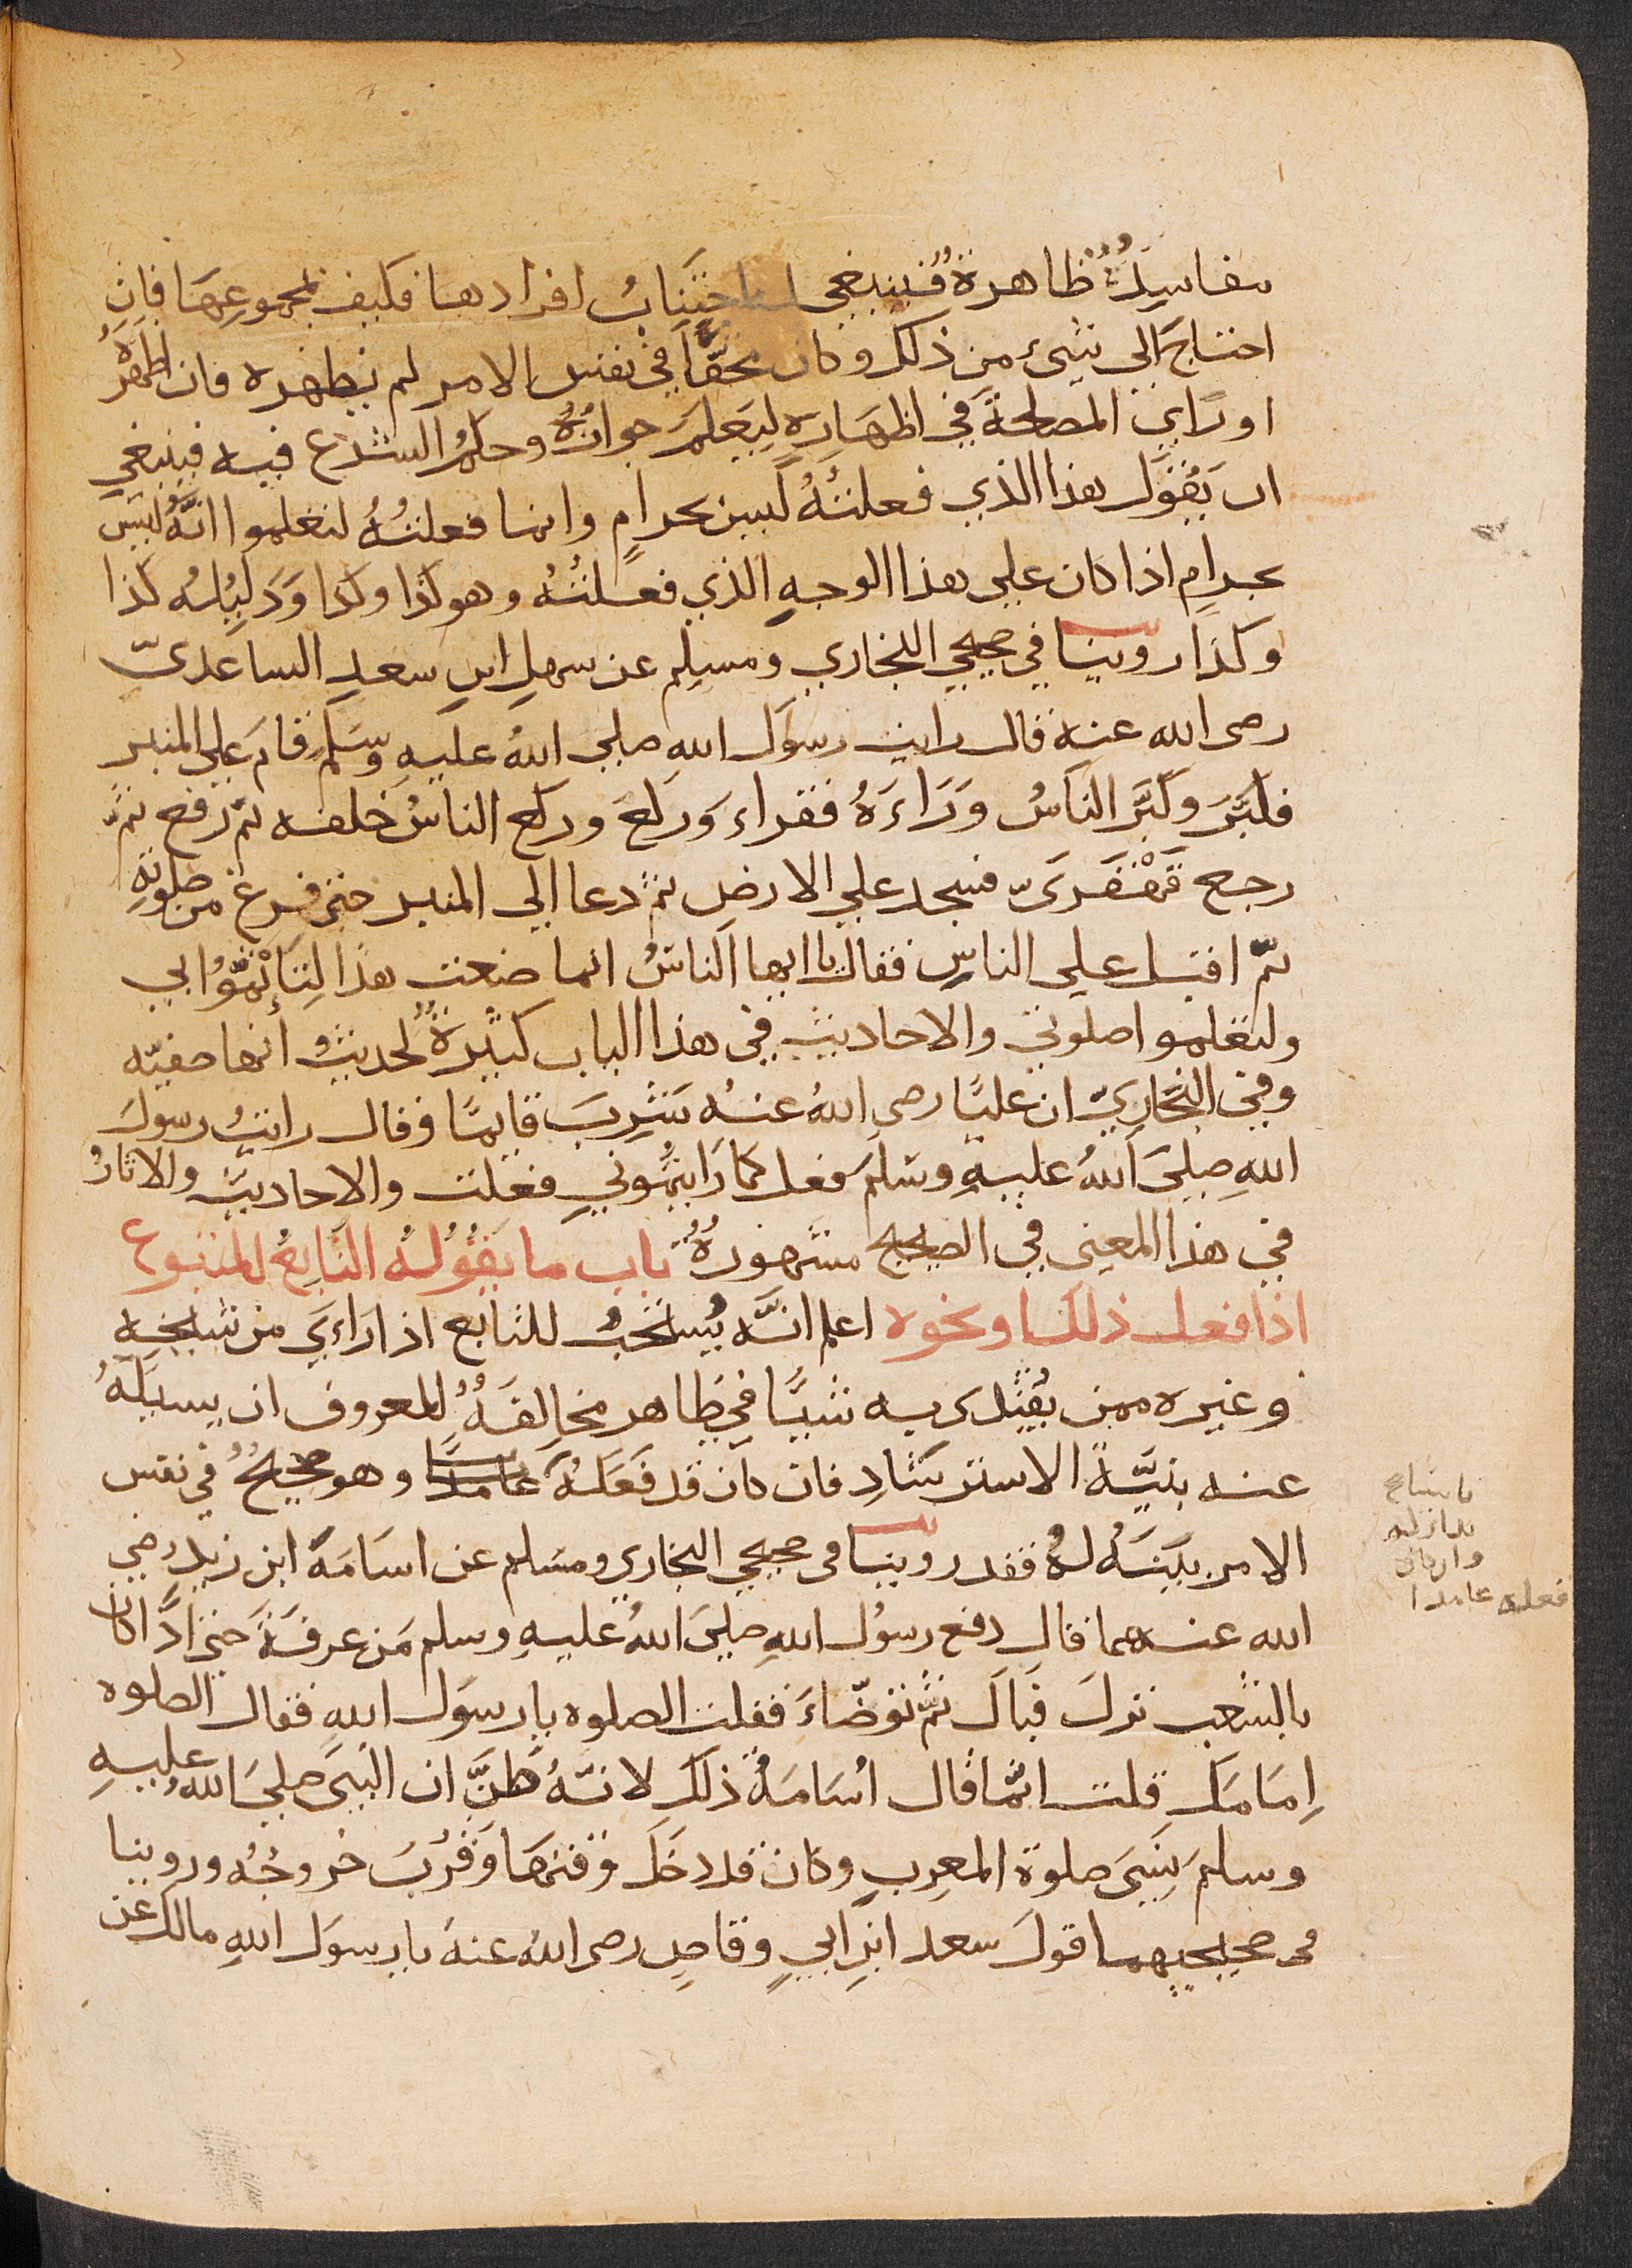 مفاسِدٌ ظاهرةٌ فينبغي له اجتِنَابُ افرادها فكيف بمجموعِهَا فان
احتاجَ الى شىء من ذلك وكان محقّاً في نفس الامر لم يظهره فان اظهَرَهُ
او رَاي المصلحةَ في اظهَارِه لِيَعلَمَ جوازُهُ وحكمُ الشرع فيه فينبغي
ان يَقُوَل هذا الذي فعلتُهُ ليس بحرامٍ وانما فعلتُهُ لتعلموا انَّهُ ليسَ
بحرامٍ اذا كان علي هذا الوجهِ الذي فعلتُهُ وهو كذا وكذا وَدَلِيلُه كذا
وكذا روينا في صحيحي البخاري ومسلِم عن سهلِ ابنِ سعدٍ الساعديّ
رصى الله عنه قال رايت رسوَل اللهِ صلي اللهُ عليهِ وسَلم قامَ علي المنبر
فكبَّرَ وكبَّرَ الناسُ وَرَاءَهُ فقراء وَركعَ وركع الناسُ خلفه ثم رفع ثمّ
رجع قَهْقَرَىّ فسجد علي الارض ثم دعا الي المنبر حتى فرغ من صلوتهِ
ثمّ اقبل علي الناسِ فقال يا ايها الناسُ انما صنعت هذا لِتَأتَمّوُا بي
ولتعلموا صلوتي والاحاديث في هذا الباب كثيرةٌ لحديث انها صفيّه
وفي البخَاريّ ان عليًّا رصى اللهُ عنهُ شَرِبَ قايمًا وقال رايتُ رسولَ
اللهِ صليَ اللهُ عليهِ وسَلمَ فعل كما رَايتُموُني فعلت والاحاديثُ والاثارُ
في هذا المعني في الصحيح مشهورةٌ باب ما يَقُوُلهُ التَّابِعُ للمتبوع
اذا فعل ذلك او نحوه اعلم انَّه يُستحَبُّ للتابع اذا رَاءي من شيخِه
وغيره ممن يُقتدى به شيئًا في ظَاهر مخالِفَةٌ للمعروف ان يسيلَهُ
عنه بنيَّةِ الاسترشَادِ فان كان قد فَعَلهُ عامدًا وهو صحيحٌ في نفس
الامر بيَّنَهُ لهُ فقد روينا في صحيحي البخاري ومسَلم عن اسَامَةَ ابن زيد رضي
الله عنهما قال دفع رسوُل اللهِ صليَ اللهُ عليهِ وسلم مَن عرفَةَ حتى اذَا كان
بالشعبِ نزلَ فَبَالَ ثمّ توضّاءَ فقلت الصلوه يا رسوَل اللهِ فقال الصلوه
اِمَامَك قلت انَّما قال اُسَامَةُ ذلك لانَّهُ ظنَّ ان النبَى صليَ اللهُ عليهِ
وسلمَ نَسِىَ صلوةَ المغربِ وكان قد دَخَلَ وقتهَا وَقَرُبَ خُروجُهُ وروينا
فى صحيحيهما قولَ سعد ابن ابي وقاصٍ رصى اللهُ عنهُ يا رسوَل اللهِ مالك عن
فعله عامدا